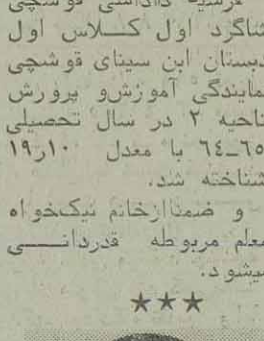 فرشید داداشی قوشچی
شاگرد اول کــلاس اول
دبستان ابن سینای قوشچی
نمایندگی آموزش‌و پرورش
ناحیه ۲ در سال تحصیلی
۶۵ــ۶۴ با معدل ۱۹٫۱۰
شناخته شد.
و ضمناازخانم نیکخواه
معلم مربوطه قدردانــی
میشود.
★★★